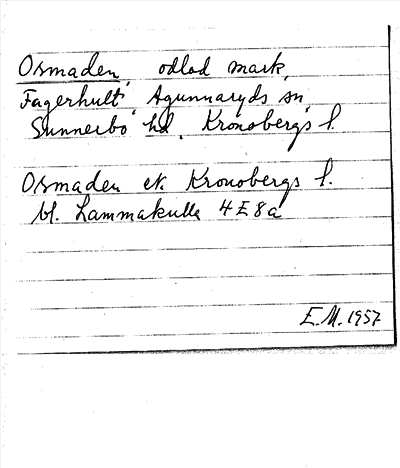 Osmaden, odlad mark,
Fagerhult, Agunnaryds sn,
Sunnerbo hd, Kronobergs l.
Osmaden ek. Kronobergs l.
bl. Lammakulla 4E8a
E.M. 1957